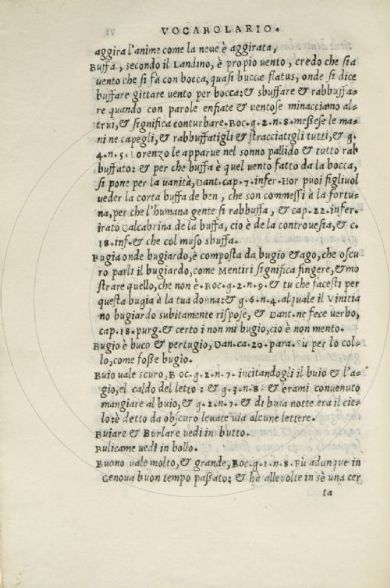 VOCABOLARIO.
aggira l'anime come la neue è aggirata,
Buffa, secondo il Landino, è propio uento, credo che sia
uento che si fa con bocca, quasi buccæ flatus, onde si dice
buffare gittare uento per bocca; & sbuffare & rabbuffa-
re quando con parole enfiate & uentose minacciamo al-
trui, & significa conturbare. Boc. g. 2. n. 8. messese le ma
ni ne capegli, & rabbuffatigli & stracciatigli tutti, & g.
4. n. 5. Lorenzo le apparue nel sonno pallido & tutto rab
buffato: & per che buffa è quel uento fatto da la bocca,
si pone per la uanità, Dant. cap. 7. infer. Hor puoi figliuol
ueder la corta buffa de ben, che son commessi à la fortu-
na, per che l'humana gente si rabbuffa, & cap. 22. infer.
irato Calcabrina de la buffa, cio è de la controuersia, & c.
18. inf. & che col muso sbuffa.
Bugia onde bugiardo, è composta da bugio & ago, che oscu
ro parli il bugiardo, come Mentiri significa fingere, & mo
strare quello, che non è. Boc. g. 2. n. 9. & tu che facesti per
questa bugia à la tua donna: & g. 6. n. 4. al quale il Vinitia
no bugiardo subitamente rispose, & Dant. ne fece uerbo,
cap. 18. purg. & certo i non mi bugio, cio è non mento.
Bugio è buco & pertugio, Dan. ca. 20. para. Su per lo col-
lo, come fosse bugio.
Buio uale scuro, Boc. g. 2. n. 7. incitandogli il buio & l'a-
gio, el caldo del letto: & g. 3. n. 8. & erami conuenuto
mangiare al buio, & g. 2. n. 7. & di buia notte era il cie-
lo: è detto da obscuro leuate uia alcune lettere.
Buiare & Burlare uedi in butto.
Bulicame uedi in bollo.
Buono uale molto, & grande, Boc. g. 1. n. 8. Fù adunque in
Genoua buon tempo passato; & ha alle uolte in sè una cer
ta